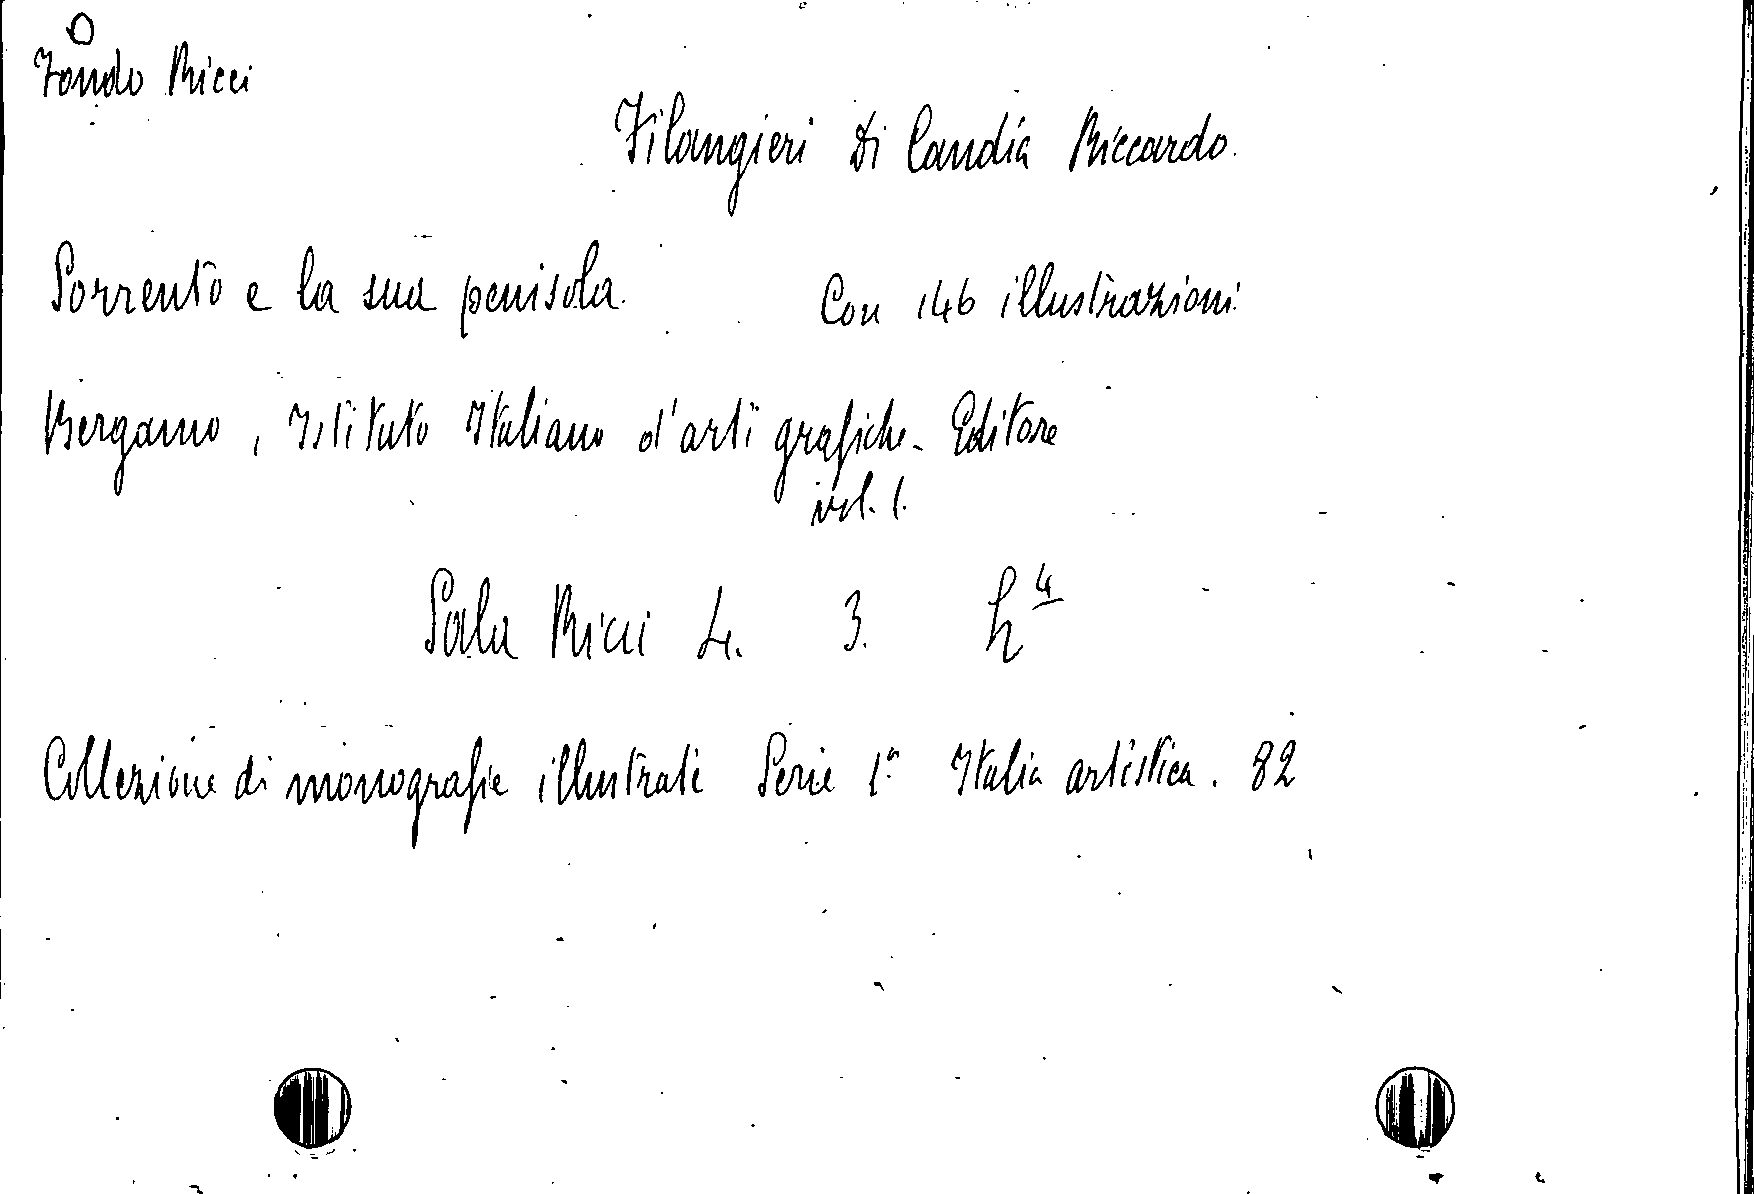 Fondo Ricci
Filangieri Di Candia Riccardo.
Sorrento e la sua penisola. Con 146 illustrazioni.
Bergamo, Istituto Italiano d'arti grafiche - Editore
vol. 1.
Sala Ricci 4. 3. h 4
Collezione di monografie illustrate Serie 1ª Italia artistica. 82